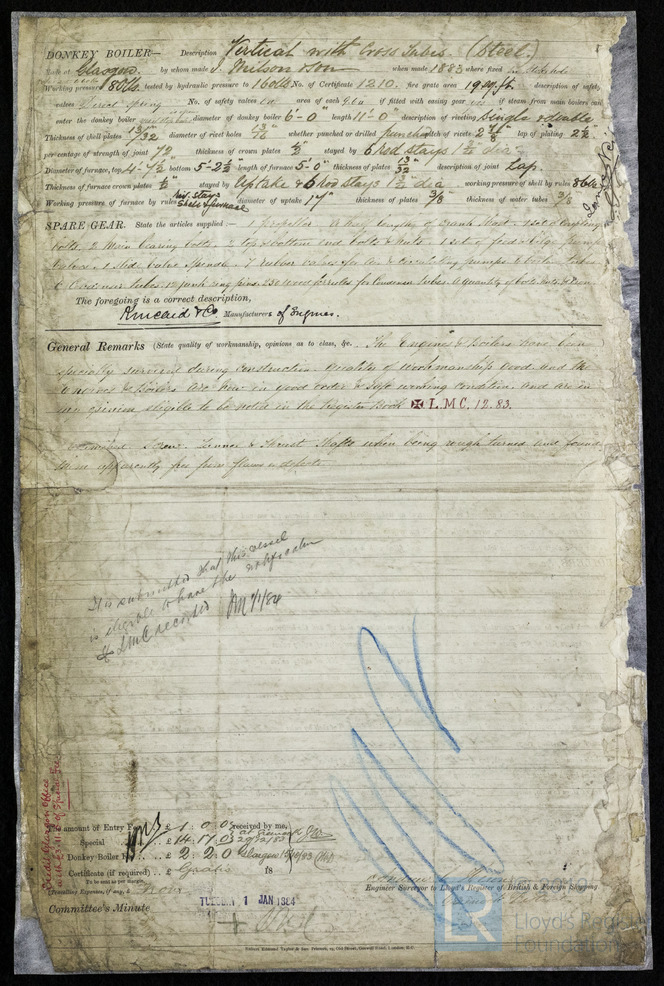 DONKEY BOILER— Description Vertical with Cross Tubes. (Steel.)
Made at Glasgow. by whom made J. Wilson & Son when made 1883 where fixed in Stokehold
Working pressure 80lbs. tested by hydraulic pressure to 160lbs No. of Certificate 1210. fire grate area 19 sq. ft. description of safety
valves Direct Spring No. of safety valves area of each 9.6 if fitted with easing gear yes if steam from main boilers can
enter the donkey boiler diameter of donkey boiler 6'-0 length 11'-0" description of riveting Single & double
Thickness of shell plates 13/32 diameter of rivet holes 13/16 whether punched or drilled punched pitch of rivets lap of plating 2½
percentage of strength of joint 72 thickness of crown plates ½ stayed by 6 Rod stays 1½ dia
Diameter of furnace, top 4-7½ bottom 5-2½ length of furnace 5-0" thickness of plates 13/32 description of joint Lap.
Thickness of furnace crown plates ½" stayed by Uptake & 6 Rod stays 1½ dia working pressure of shell by rules 86lbs
Working pressure of furnace by rules diameter of uptake 17" thickness of plates 3/8 thickness of water tubes 3/8
SPARE GEAR. State the articles supplied:— 1 propeller. A Half Coupling of Crank Shaft. 1 set of Coupling
bolts. 2 Main bearing bolts. 2 top & bottom end bolts & nuts. 1 set of feed & bilge pump
valves. 1 Slide valve Spindle. 7 rubber valves for Air & Circulating pumps. 6 boiler tubes
6 Condenser tubes. 12 junk ring pins. 250 wood ferrules for Condenser tubes. A quantity of bolts nuts & iron.
The foregoing is a correct description,
Kincaid & Co. Manufacturers of Engines.
General Remarks (State quality of workmanship, opinions as to class, &c. The Engines & Boilers have been
specially surveyed during construction. Quality of Workmanship Good. and the
Engines & Boilers are now in good order & safe working condition and are in
my opinion eligible to be noted in the Register Book ✠ L.M.C. 12.83.
Examined Screw. Tunnel & Thrust Shafts when being rough turned and found
them apparently free from flaws or defects
It is submitted that this vessel
is eligible to have the notification
of LMC recorded
The amount of Entry Fee £ 1 . 0 . 0 received by me,
Special £ 14 . 17 . 0
Donkey Boiler Fee £ 2 . 2 . 0 Glasgow
Certificate (if required) £ Gratis 18
To be sent as per margin.
(Travelling Expenses, if any, £
Engineer Surveyor to Lloyd's Register of British & Foreign Shipping
Committee's Minute TUESDAY 1 JAN 1884
LR
Lloyd's Register
Foundation